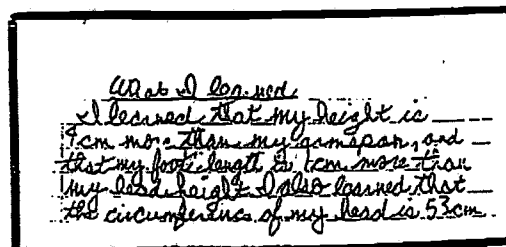 What I learned.
I learned that my height is
9cm more than my armspan, and
that my foot length is 1cm more than
my head height I also learned that
the circumference of my head is 53cm